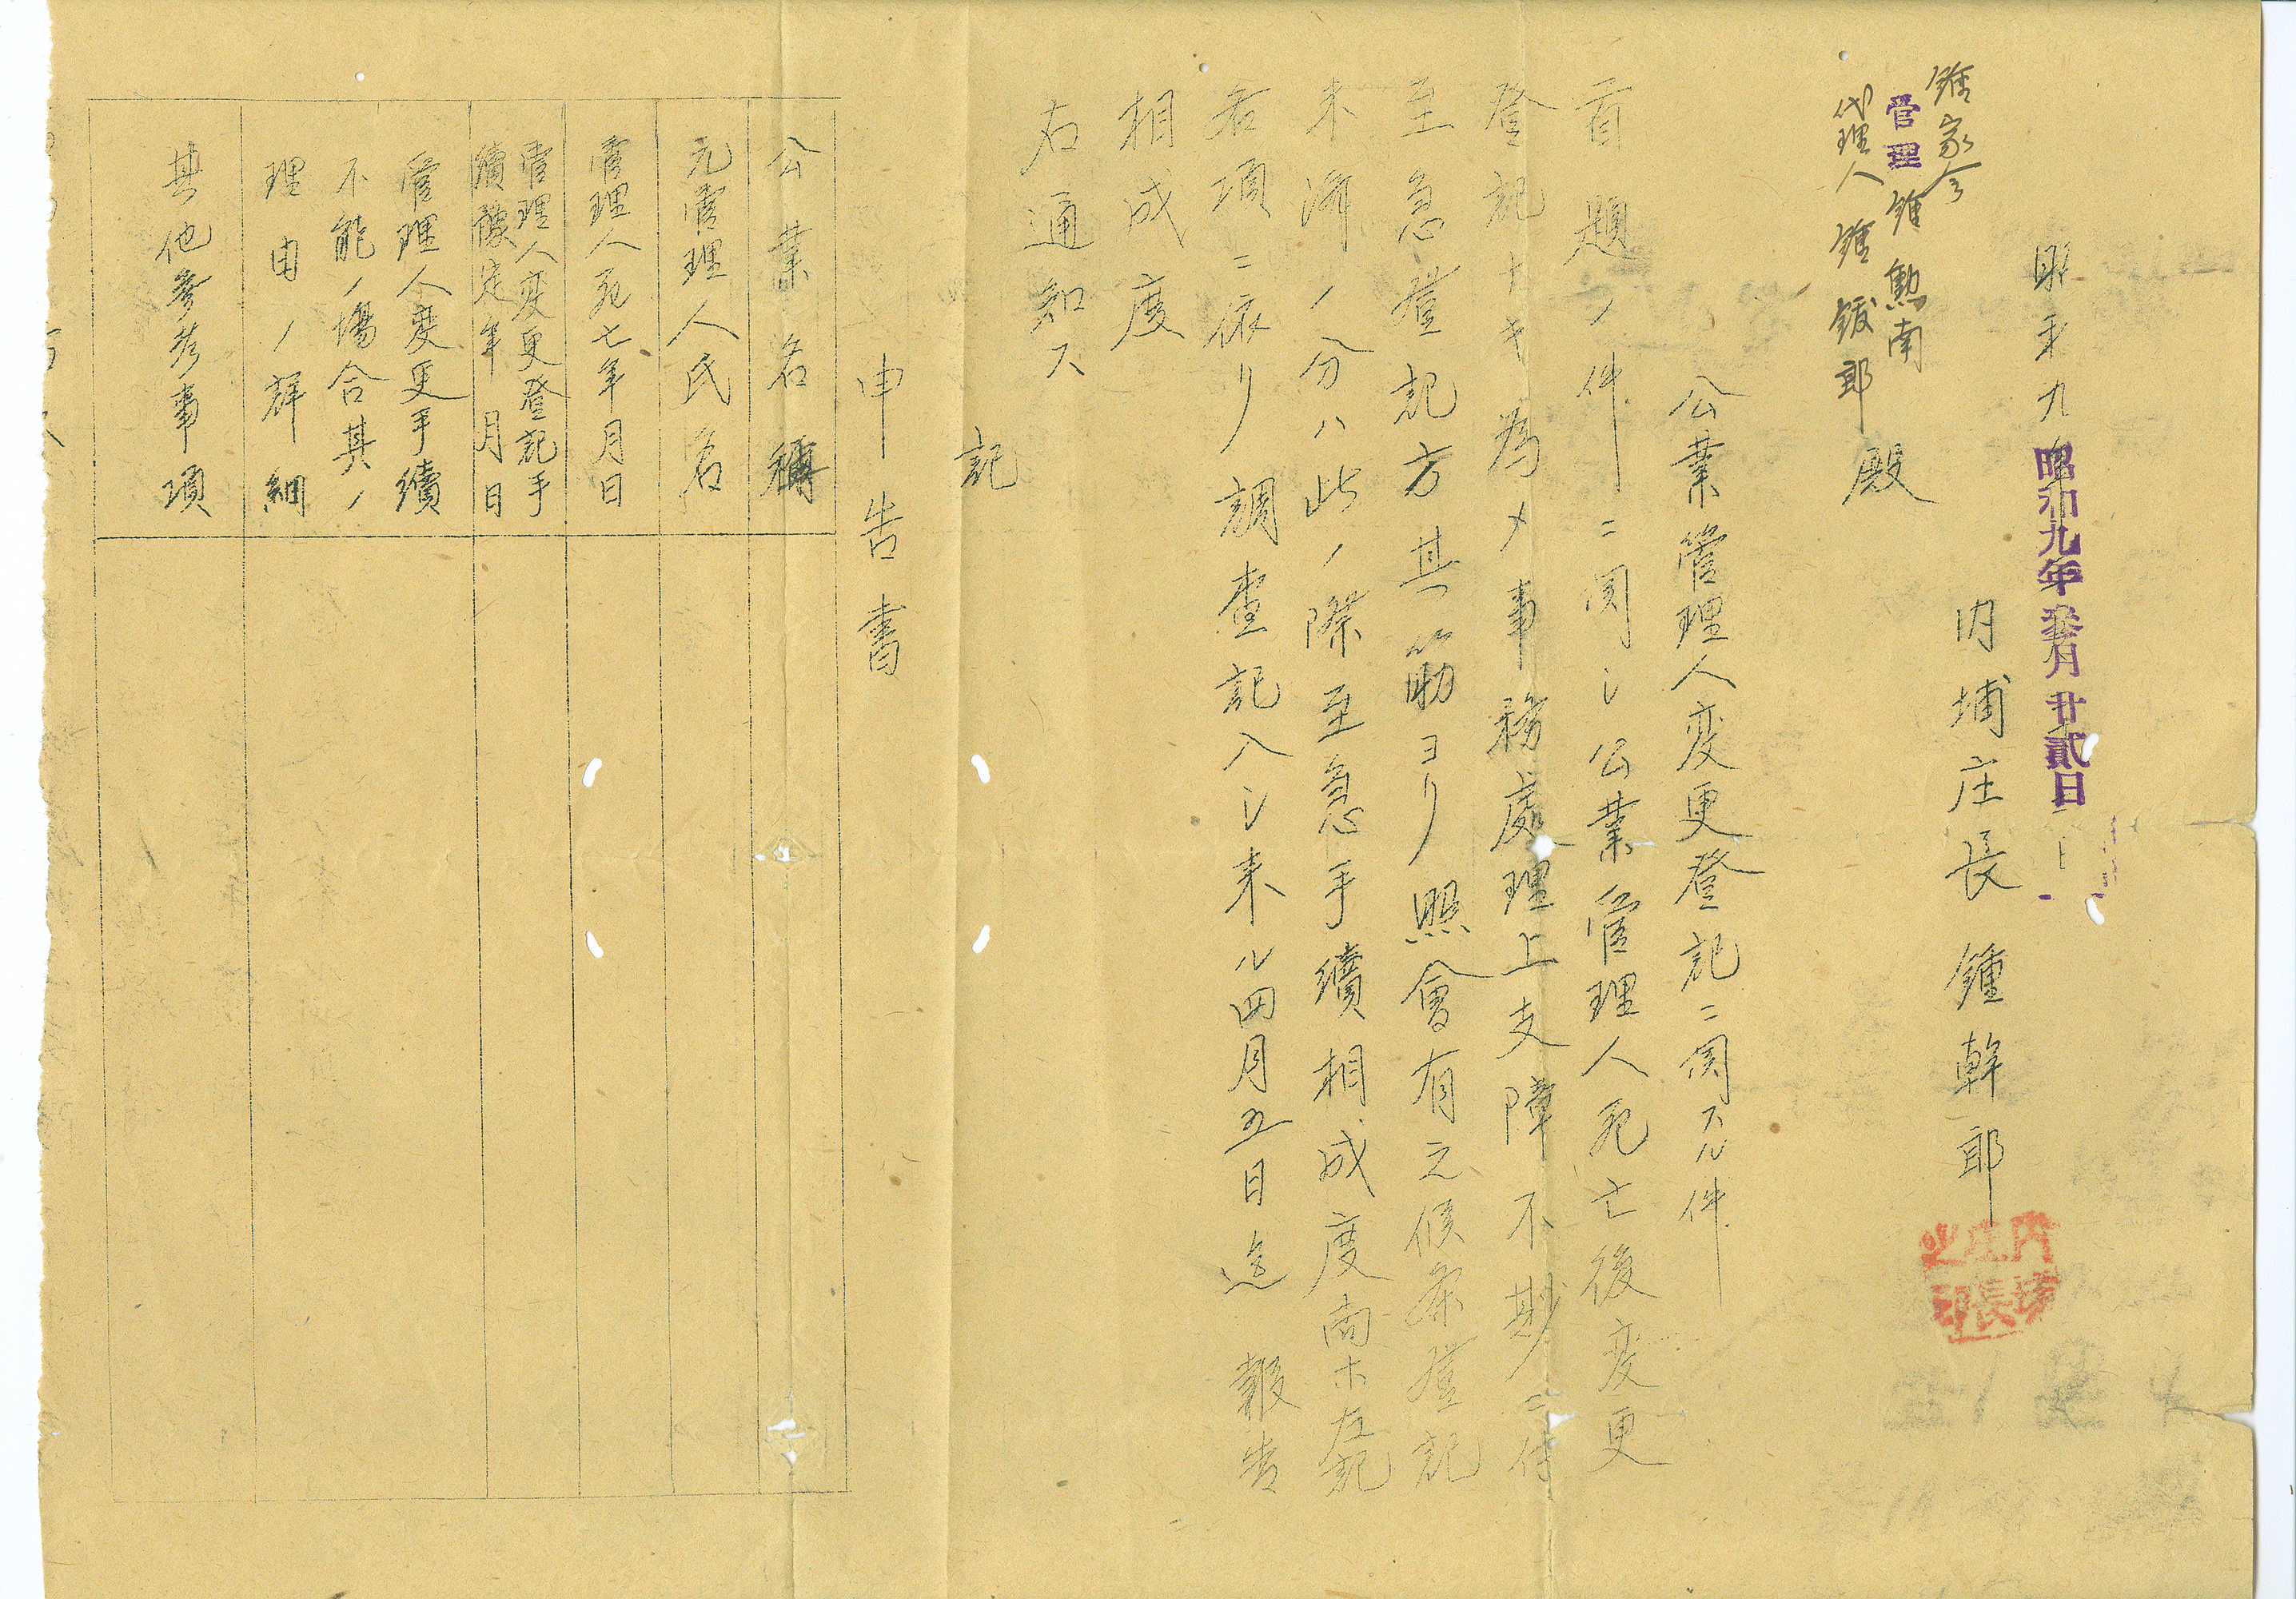 昭和九年
昭和九年叁月廿貳日
內埔庄長 鍾幹郎
內埔庄長之印
鍾家会
管理 鍾勲南
代理人 鍾鍰郎
殿
公業管理人変更登記ニ関スル件
首題ノ件ニ関シ公業管理人死亡後変更
登記ナキ為メ事務處理上支障不尠ニ付
至急登記方其筋ヨリ照會有之候条登記
未濟ノ分ハ此ノ際至急手續相成度尚ホ左記
各項ニ依リ調査記入シ来ル四月五日迄報告
相成度
右通知ス
記
申告書
公業名稱
元管理人氏名
管理人死亡年月日
管理人変更登記手
續豫定年月日
管理人変更手續
不能ノ場合其ノ
理由ノ詳細
其他參考事項